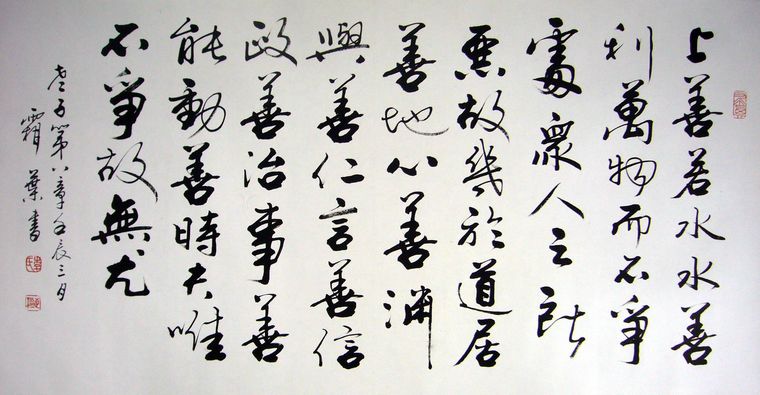 上善若水水善
利萬物而不爭
處衆人之所
惡故幾於道居
善地心善淵
與善仁言善信
政善治事善
能動善時夫唯
不爭故無尤
老子第八章壬辰三月
霜葉書